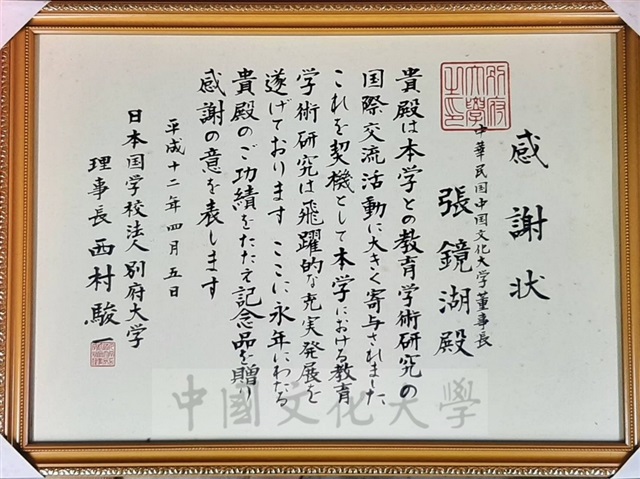 感謝状
中華民国中国文化大学董事長
張鏡湖殿
貴殿は本学との教育学術研究の
国際交流活動に大きく寄与されました
これを契機として本学における教育
学術研究は飛躍的な充実発展を
遂げております ここに永年にわたる
貴殿のご功績をたたえ記念品を贈り
感謝の意を表します
平成十二年四月五日
日本国学校法人別府大学
理事長 西村駿一
別府大学之印
中國文化大學